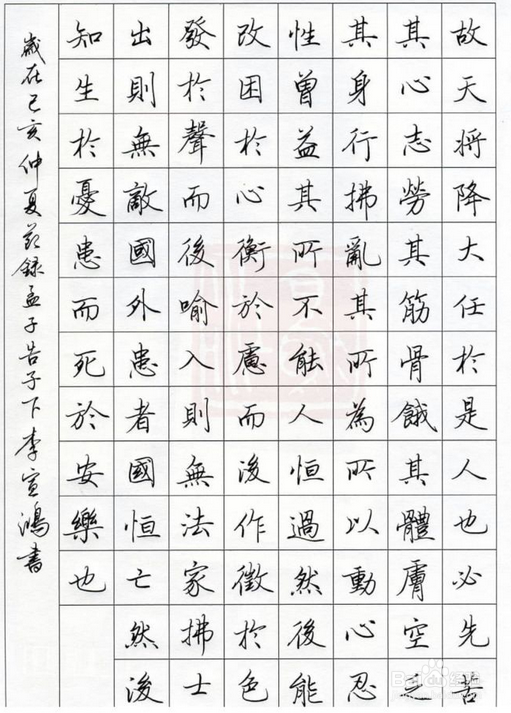 故天將降大任於是人也必先苦
其心志勞其筋骨餓其體膚空乏
其身行拂亂其所為所以動心忍
性曾益其所不能人恒過然後能
改困於心衡於慮而後作徵於色
發於聲而後喻入則無法家拂士
出則無敵國外患者國恒亡然後
知生於憂患而死於安樂也
歲在己亥仲夏節錄孟子告子下李宣鴻書